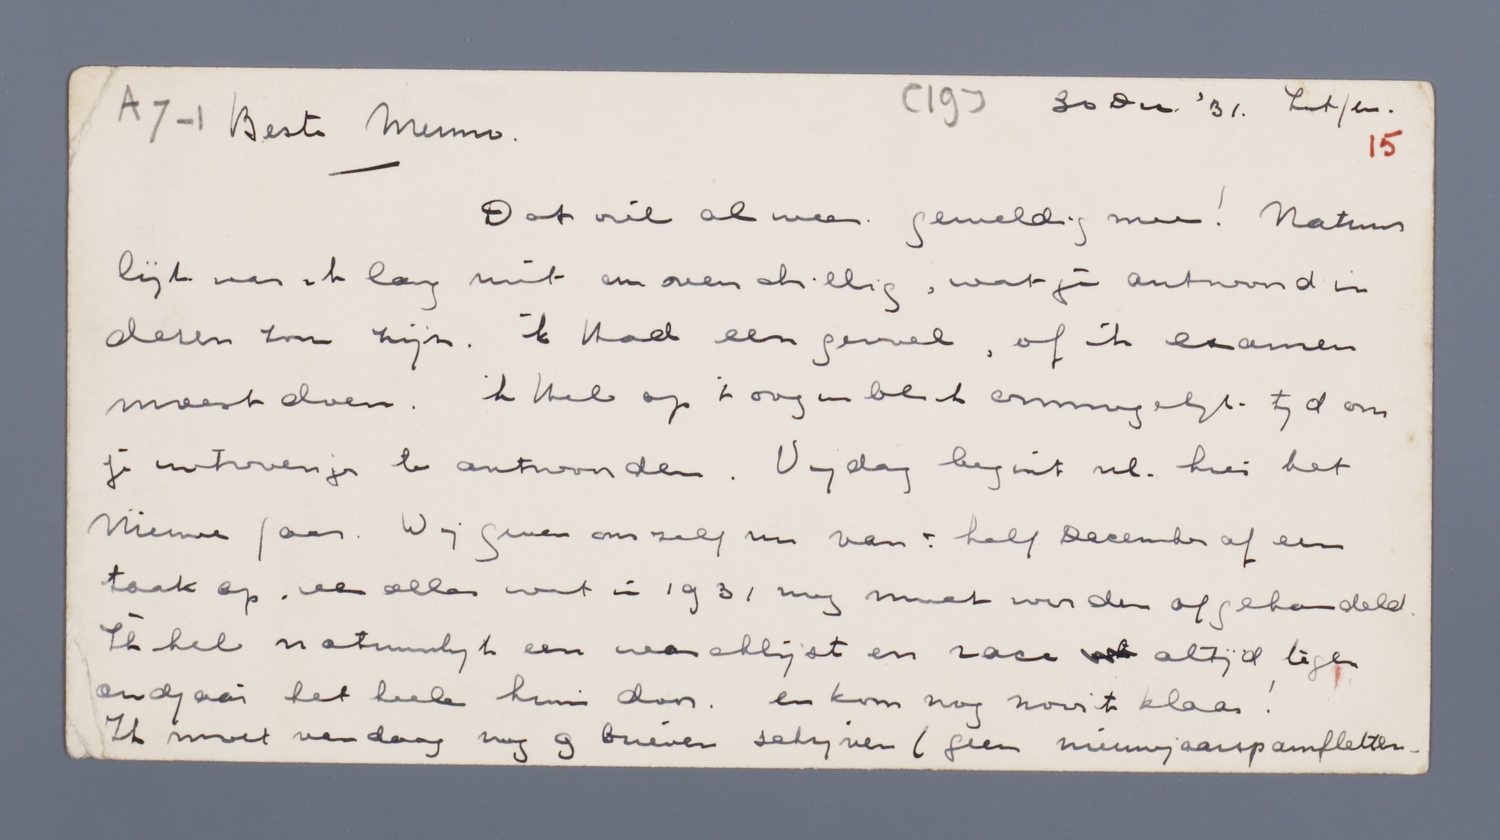 A7-1 Beste Menno. (19) 30 Dec. '31. Zutfen.
15
Dat viel alweer geweldig mee! Natuur
lijk was ik lang niet onverschillig, wat je antwoord in
dezen zou zijn. Ik had een gevoel, of ik examen
moest doen. Ik heb op 't oogenblik onmogelijk tijd om
je uitvoeriger te antwoorden. Vrijdag begint nl. hier het
Nieuwe Jaar. Wij geven ons zelf nu van: half December af een
taak op, van alles wat in 1931 nog moet worden afgehandeld.
Ik heb natuurlijk een waschlijst en race altijd tegen
oudjaar het heele huis door. en kom nog nooit klaar!
Ik moet vandaag nog 9 brieven schrijven (geen nieuwjaarspamfletten-